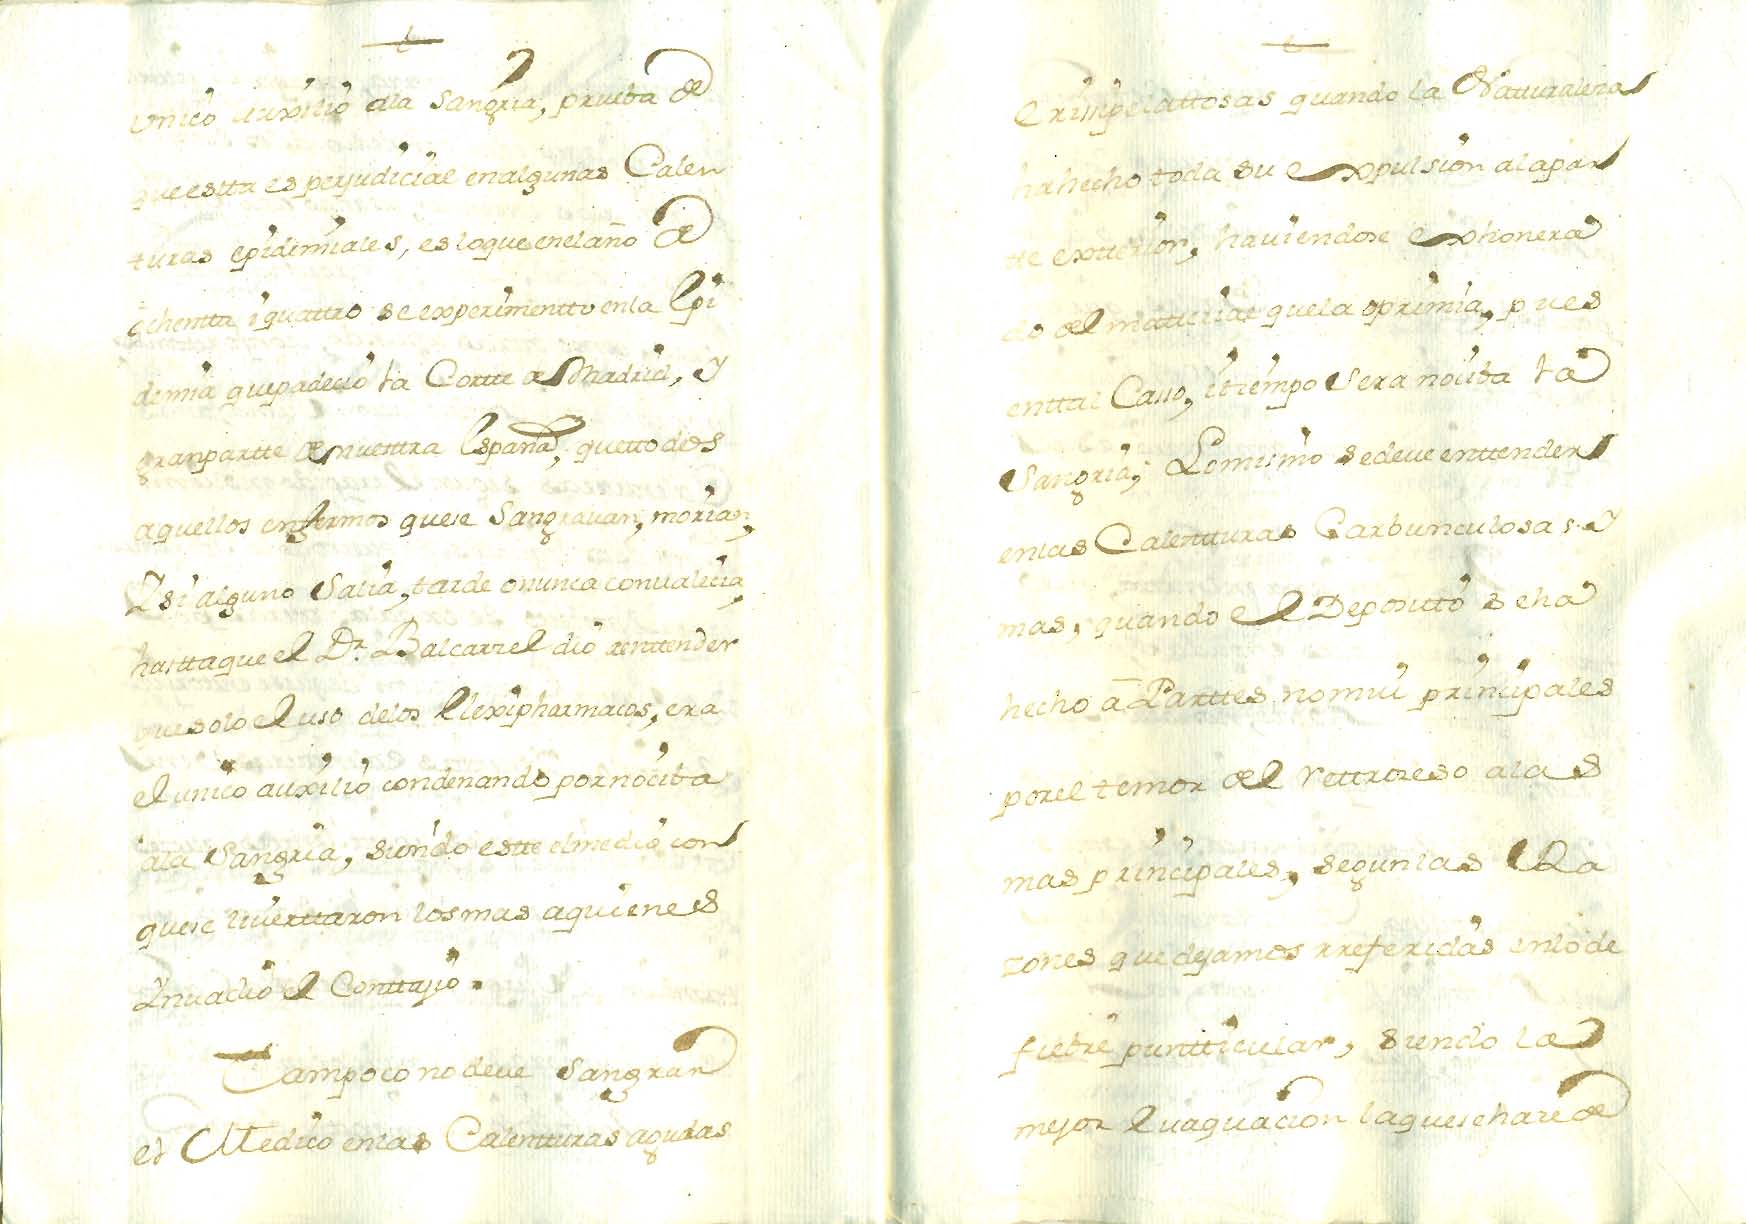 Vnico auxilio ala Sangria, prueba de
que estta es perjudicial en algunas Calen
turas epidimiales, es loque enelaño de
ochentta i quattro se experimentto enla Epi
demia que padecio la Cortte de Madrid, y
granpartte de nuesttra España, que ttodos
aquellos enfermos que se Sangrauan, morian,
Y si alguno Salia, tarde o nunca conualecia,
hastta que el Dr. Balcarzel dio a enttender
que solo el uso delos Alexipharmacos, era
el unico auxilio condenando por nociba
ala Sangria, siendo estte el medio con
que se liuerttaron los mas aquienes
Ynuadio el Conttajio.
Tampoco no deve Sangrar
el Medico enlas Calentturas agudas
Erisipelattosas quando la Natturaleza
ha hecho toda su expulsion ala par
tte extterior, hauiendose exhonera
do del matterial que la oprimia, pues
en ttal Casso, i tiempo Sera nociba la
Sangria; Lo mismo se deve enttender
enlas Calentturas Carbunculosas y
mas, quando el Deposito se ha
hecho a Parttes no mui principales
por el temor del rettrozeso alas
mas principales, segun las Ra
zones que dejamos rreferidas enlo de
fiebre puntticular, siendo la
mejor Euaquacion la que se hace de